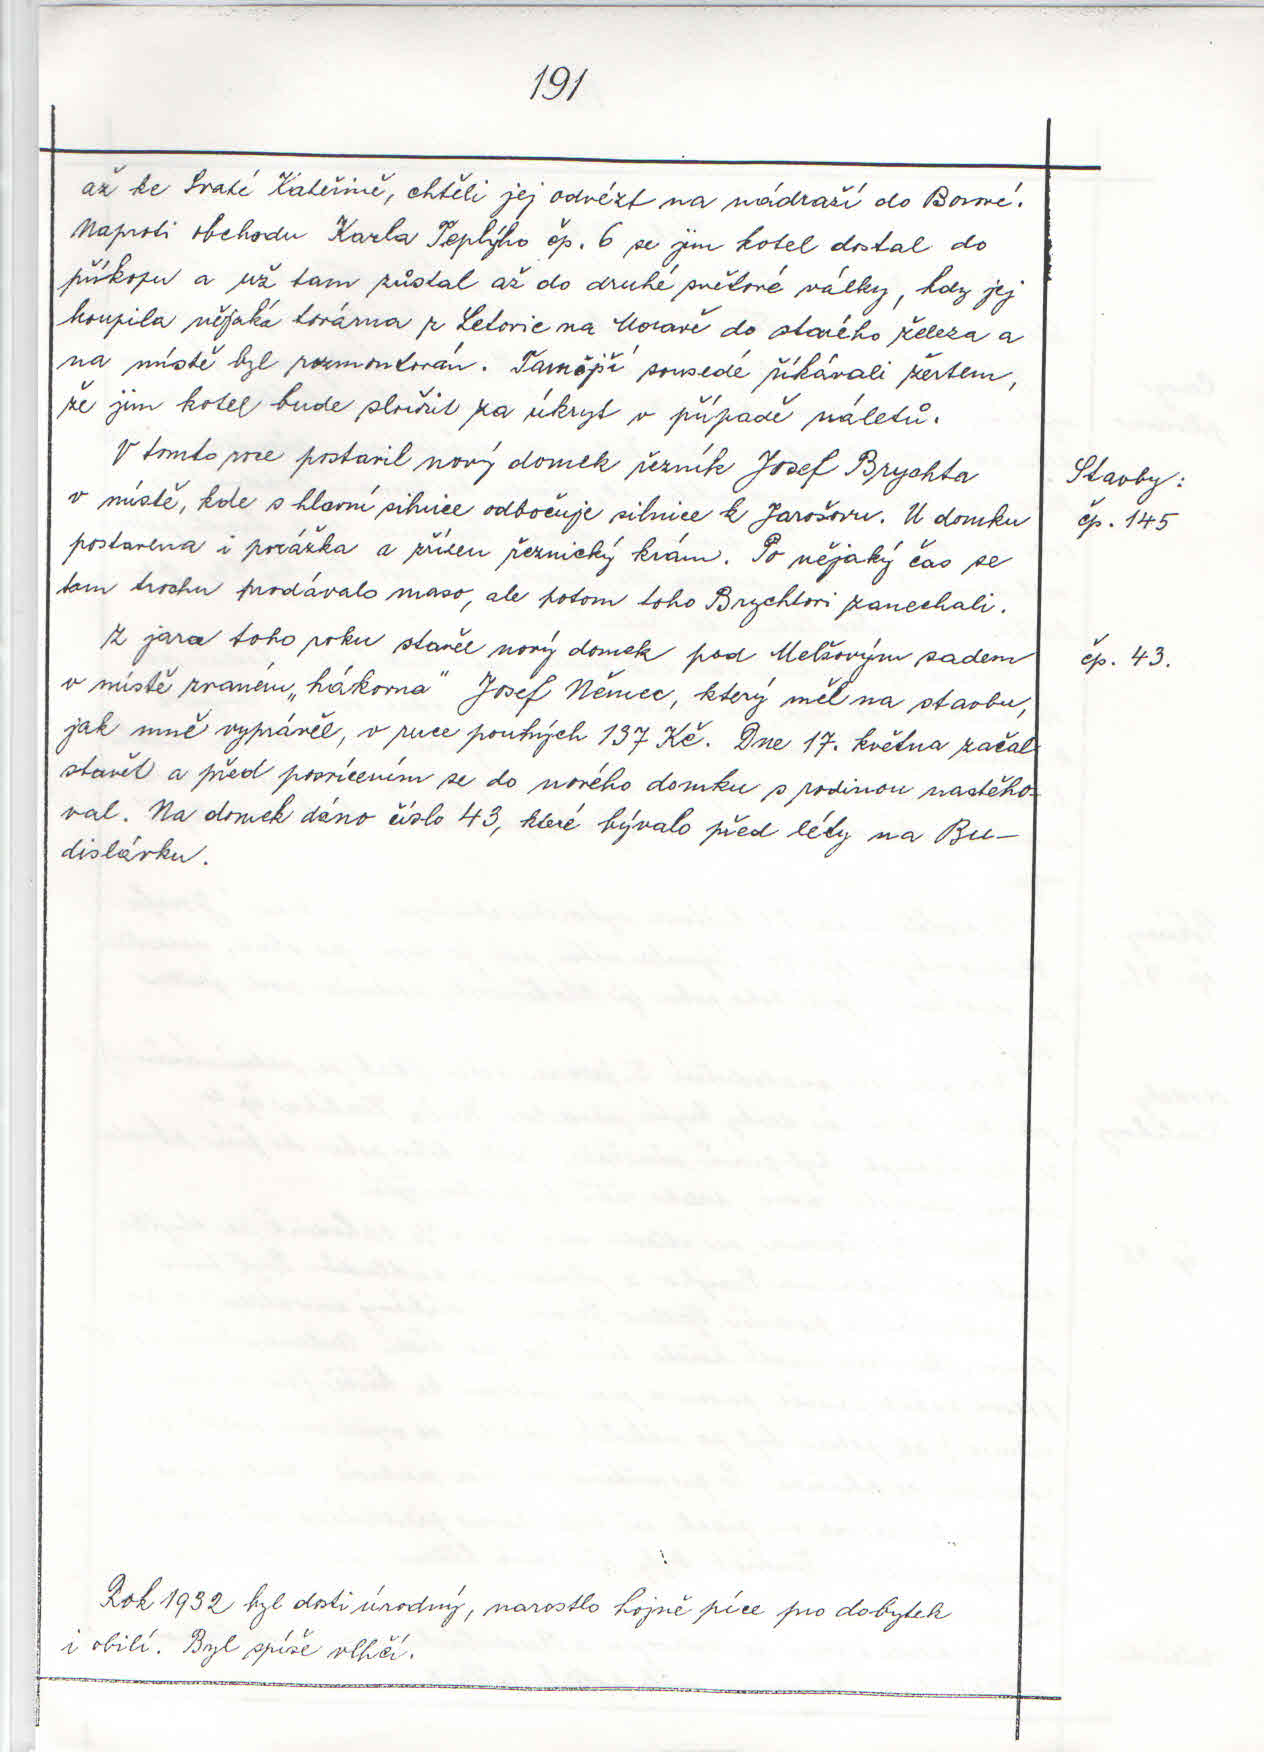 191
až ke Svaté Kateřině, chtěli jej odvézt na nádraží do Borové.
Naproti obchodu Karla Teplýho čp. 6 se jim kotel dostal do
příkopu a už tam zůstal až do druhé světové války, kdy jej
koupila nějaká továrna z Letovic na Moravě do starého železa a
na místě byl rozmontován. Tamější sousedé říkávali žertem,
že jim kotel bude sloužit za úkryt v případě náletů.
V tomto roce postavil nový domek řezník Josef Brychta
Stavby:
v místě, kde s hlavní silnice odbočuje silnice k Jarošovu. U domku
čp. 145
postavena i porážka a zřízen řeznický krám. Po nějaký čas se
tam trochu prodávalo maso, ale potom toho Brychtovi zanechali.
Z jara toho roku stavěl nový domek pod Melšovým sadem
čp. 43.
v místě zvaném „hákovna" Josef Němec, který měl na stavbu,
jak mně vyprávěl, v ruce pouhých 137 Kč. Dne 17. května začal
stavět a před posvícením se do nového domku s rodinou nastěho-
val. Na domek dáno číslo 43, které bývalo před léty na Bu-
dislávku.
Rok 1932 byl dosti úrodný, narostlo hojně píce pro dobytek
i obilí. Byl spíše vlhčí.